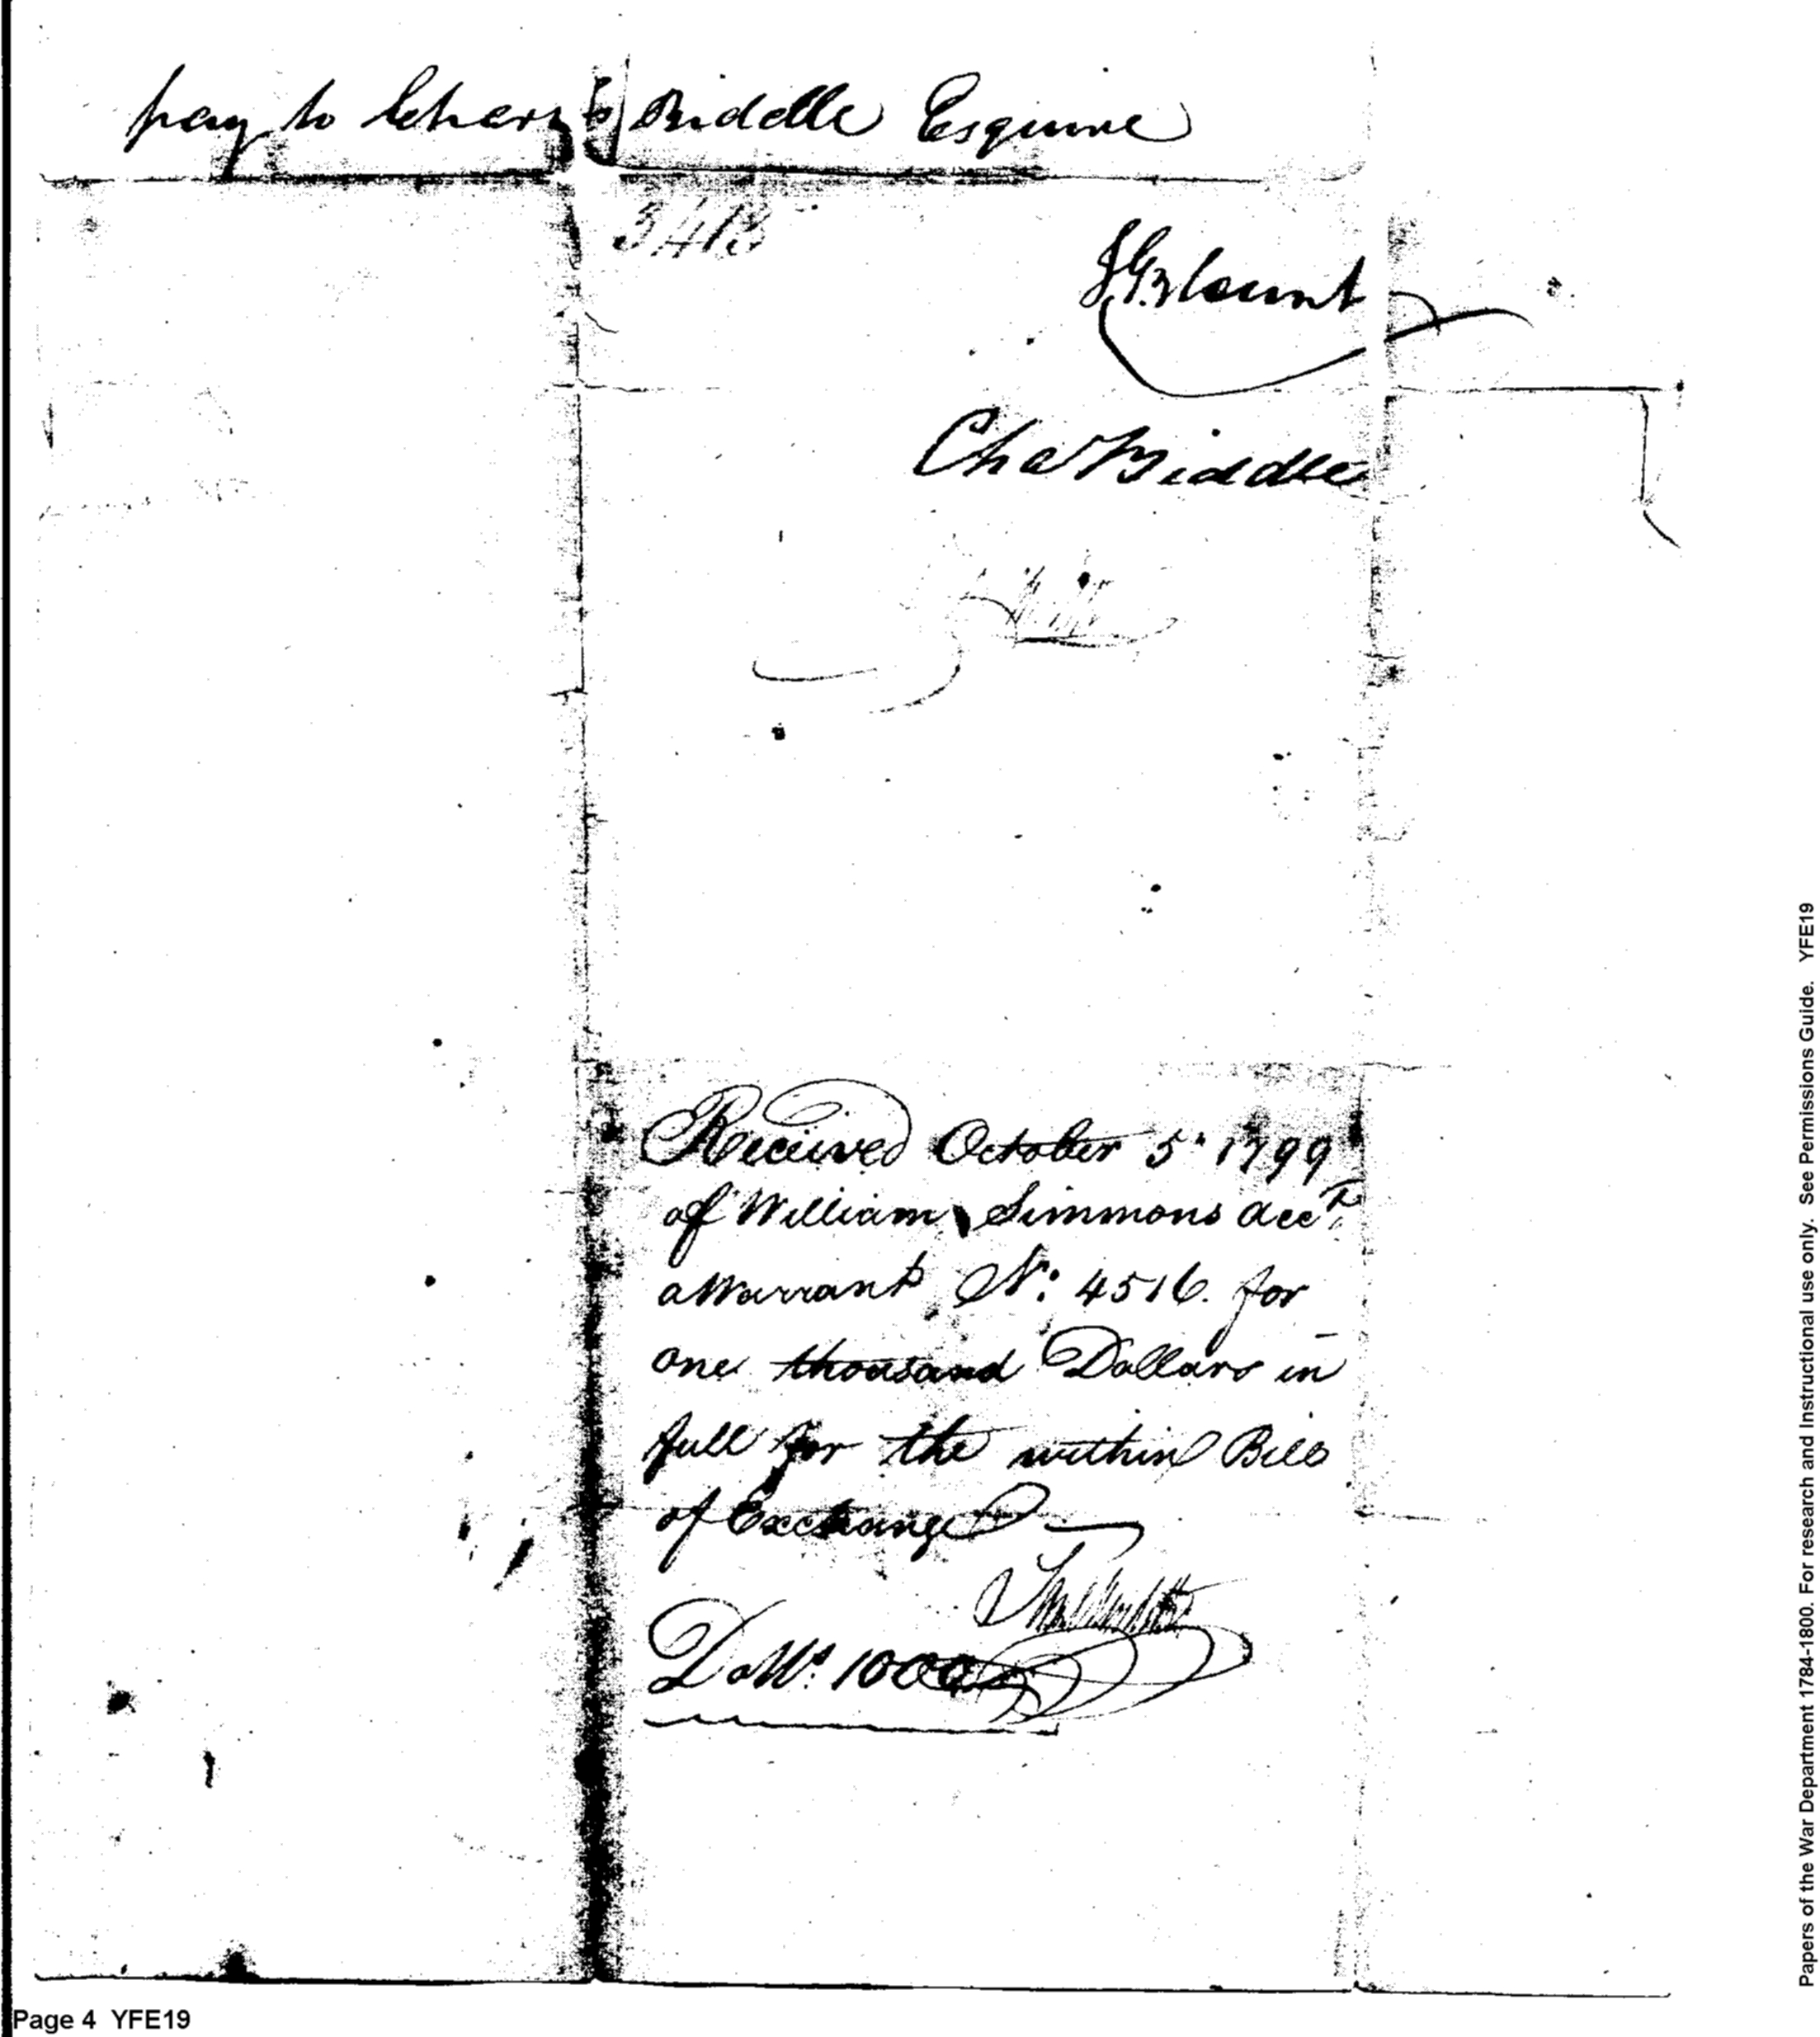 pay to Charles Biddle Esquire
3413
J G Blount
Cha Biddle
Received October 5. 1799
of William Simmons acct.
a Warrant No: 4516. for
one thousand Dollars in
full for the within Bill
of Exchange
Dolls. 1000
Papers of the War Department 1784-1800. For research and Instructional use only. See Permissions Guide. YFE19
Page 4 YFE19